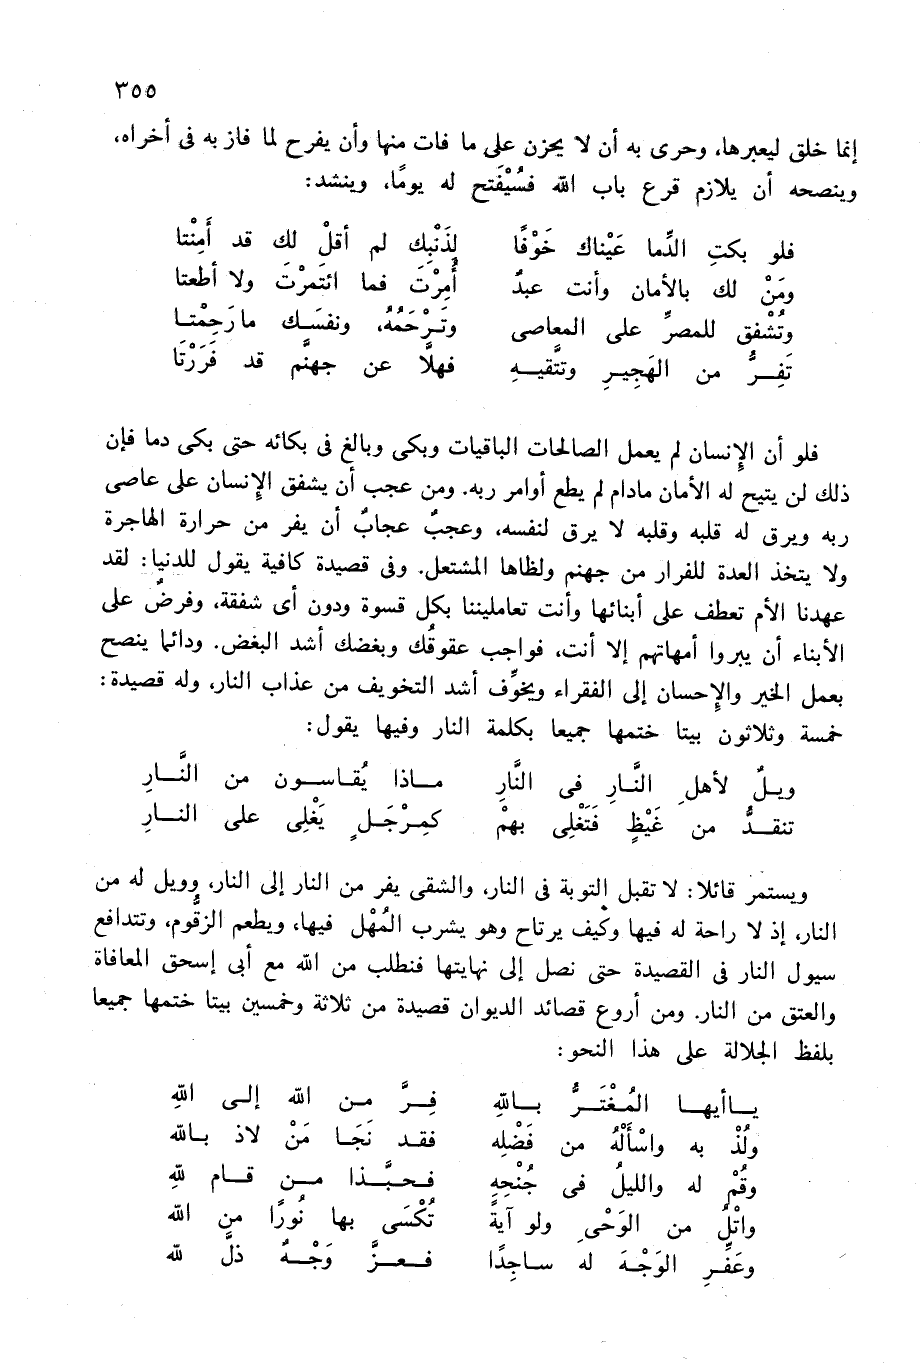 ٣٥٥
إنما خلق ليعبرها، وحرى به أن لا يحزن على ما فات منها وأن يفرح لما فاز به فى أخراه،
وينصحه أن يلازم قرع باب الله فسُيْفَتح له يومًا، وينشد:
فلو بكتِ الدِّما عَيْناك خَوْفًا لِذَنْبِك لم أقلْ لك قد أَمِنْتا
ومَنْ لك بالأمان وأنت عبدٌ أُمِرْتَ فما ائتَمرْتَ ولا أطعتا
وتُشْفق للمصرِّ على المعاصى وتَرْحَمُهُ، ونفسَك مارَحِمْتا
تَفِرُّ من الهَجِيرِ وتتَّقيهِ فهلاَّ عن جهنَّم قد فَرَرْتَا
فلو أن الإنسان لم يعمل الصالحات الباقيات وبكى وبالغ فى بكائه حتى بكى دما فإن
ذلك لن يتيح له الأمان مادام لم يطع أوامر ربه. ومن عجب أن يشفق الإنسان على عاصى
ربه ويرق له قلبه وقلبه لا يرق لنفسه، وعجبٌ عجابٌ أن يفر من حرارة الهاجرة
ولا يتخذ العدة للفرار من جهنم ولظاها المشتعل. وفى قصيدة كافية يقول للدنيا: لقد
عهدنا الأم تعطف على أبنائها وأنت تعامليننا بكل قسوة ودون أى شفقة، وفرضٌ على
الأبناء أن يبروا أمهاتهم إلا أنت، فواجب عقوقُك وبغضك أشد البغض. ودائما ينصح
بعمل الخير والإحسان إلى الفقراء ويخوِّف أشد التخويف من عذاب النار، وله قصيدة:
خمسة وثلاثون بيتا ختمها جميعا بكلمة النار وفيها يقول:
ويلٌ لأهلِ النَّارِ فى النَّارِ ماذا يُقاسون من النَّارِ
تنقدُّ من غَيْظٍ فَتَغْلِى بهمْ كمِرْجَلٍ يَغْلِى على النارِ
ويستمر قائلا: لا تقبل التوبة فى النار، والشقى يفر من النار إلى النار، وويل له من
النار، إذ لا راحة له فيها وكيف يرتاح وهو يشرب المُهْل فيها، ويطعم الزقُّوم، وتتدافع
سيول النار فى القصيدة حتى نصل إلى نهايتها فنطلب من الله مع أبى إسحق المعافاة
والعتق من النار. ومن أروع قصائد الديوان قصيدة من ثلاثة وخمسين بيتا ختمها جميعا
بلفظ الجلالة على هذا النحو:
ياأيها المُغْتَرُّ باللهِ فِرَّ من الله إلى اللهِ
ولُذْ به واسْأَلْهُ من فَضْلِه فقد نَجَا مَنْ لاذ بالله
وقُمْ له والليلُ فى جُنْحِهِ فحبَّذا من قام للهِ
واتْلُ من الوَحْىِ ولو آيةً تُكْسَى بها نُورًا من الله
وعَفِّرِ الوَجْهَ له ساجِدًا فعزَّ وَجْهٌ ذلَّ لله